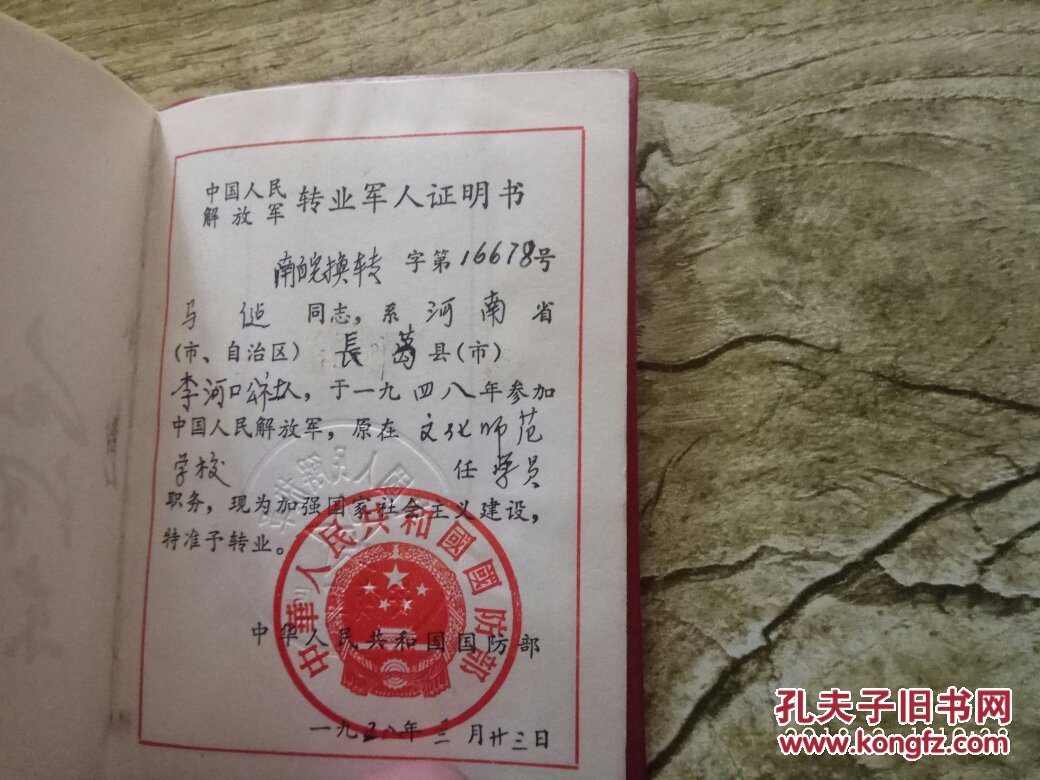 中国人民
解放军 转业军人证明书
南皖换转 字第16678号
马 同志，系河南省
(市、自治区) 長葛县(市)
李河口公社，于一九四八年参加
中国人民解放军，原在文化师范
学校 任学员
职务，现为加强国家社会主义建设，
特准予转业。
中华人民共和国国防部
中華人民共和國國防部
一九五八年三月廿三日
孔夫子旧书网
www.kongfz.com